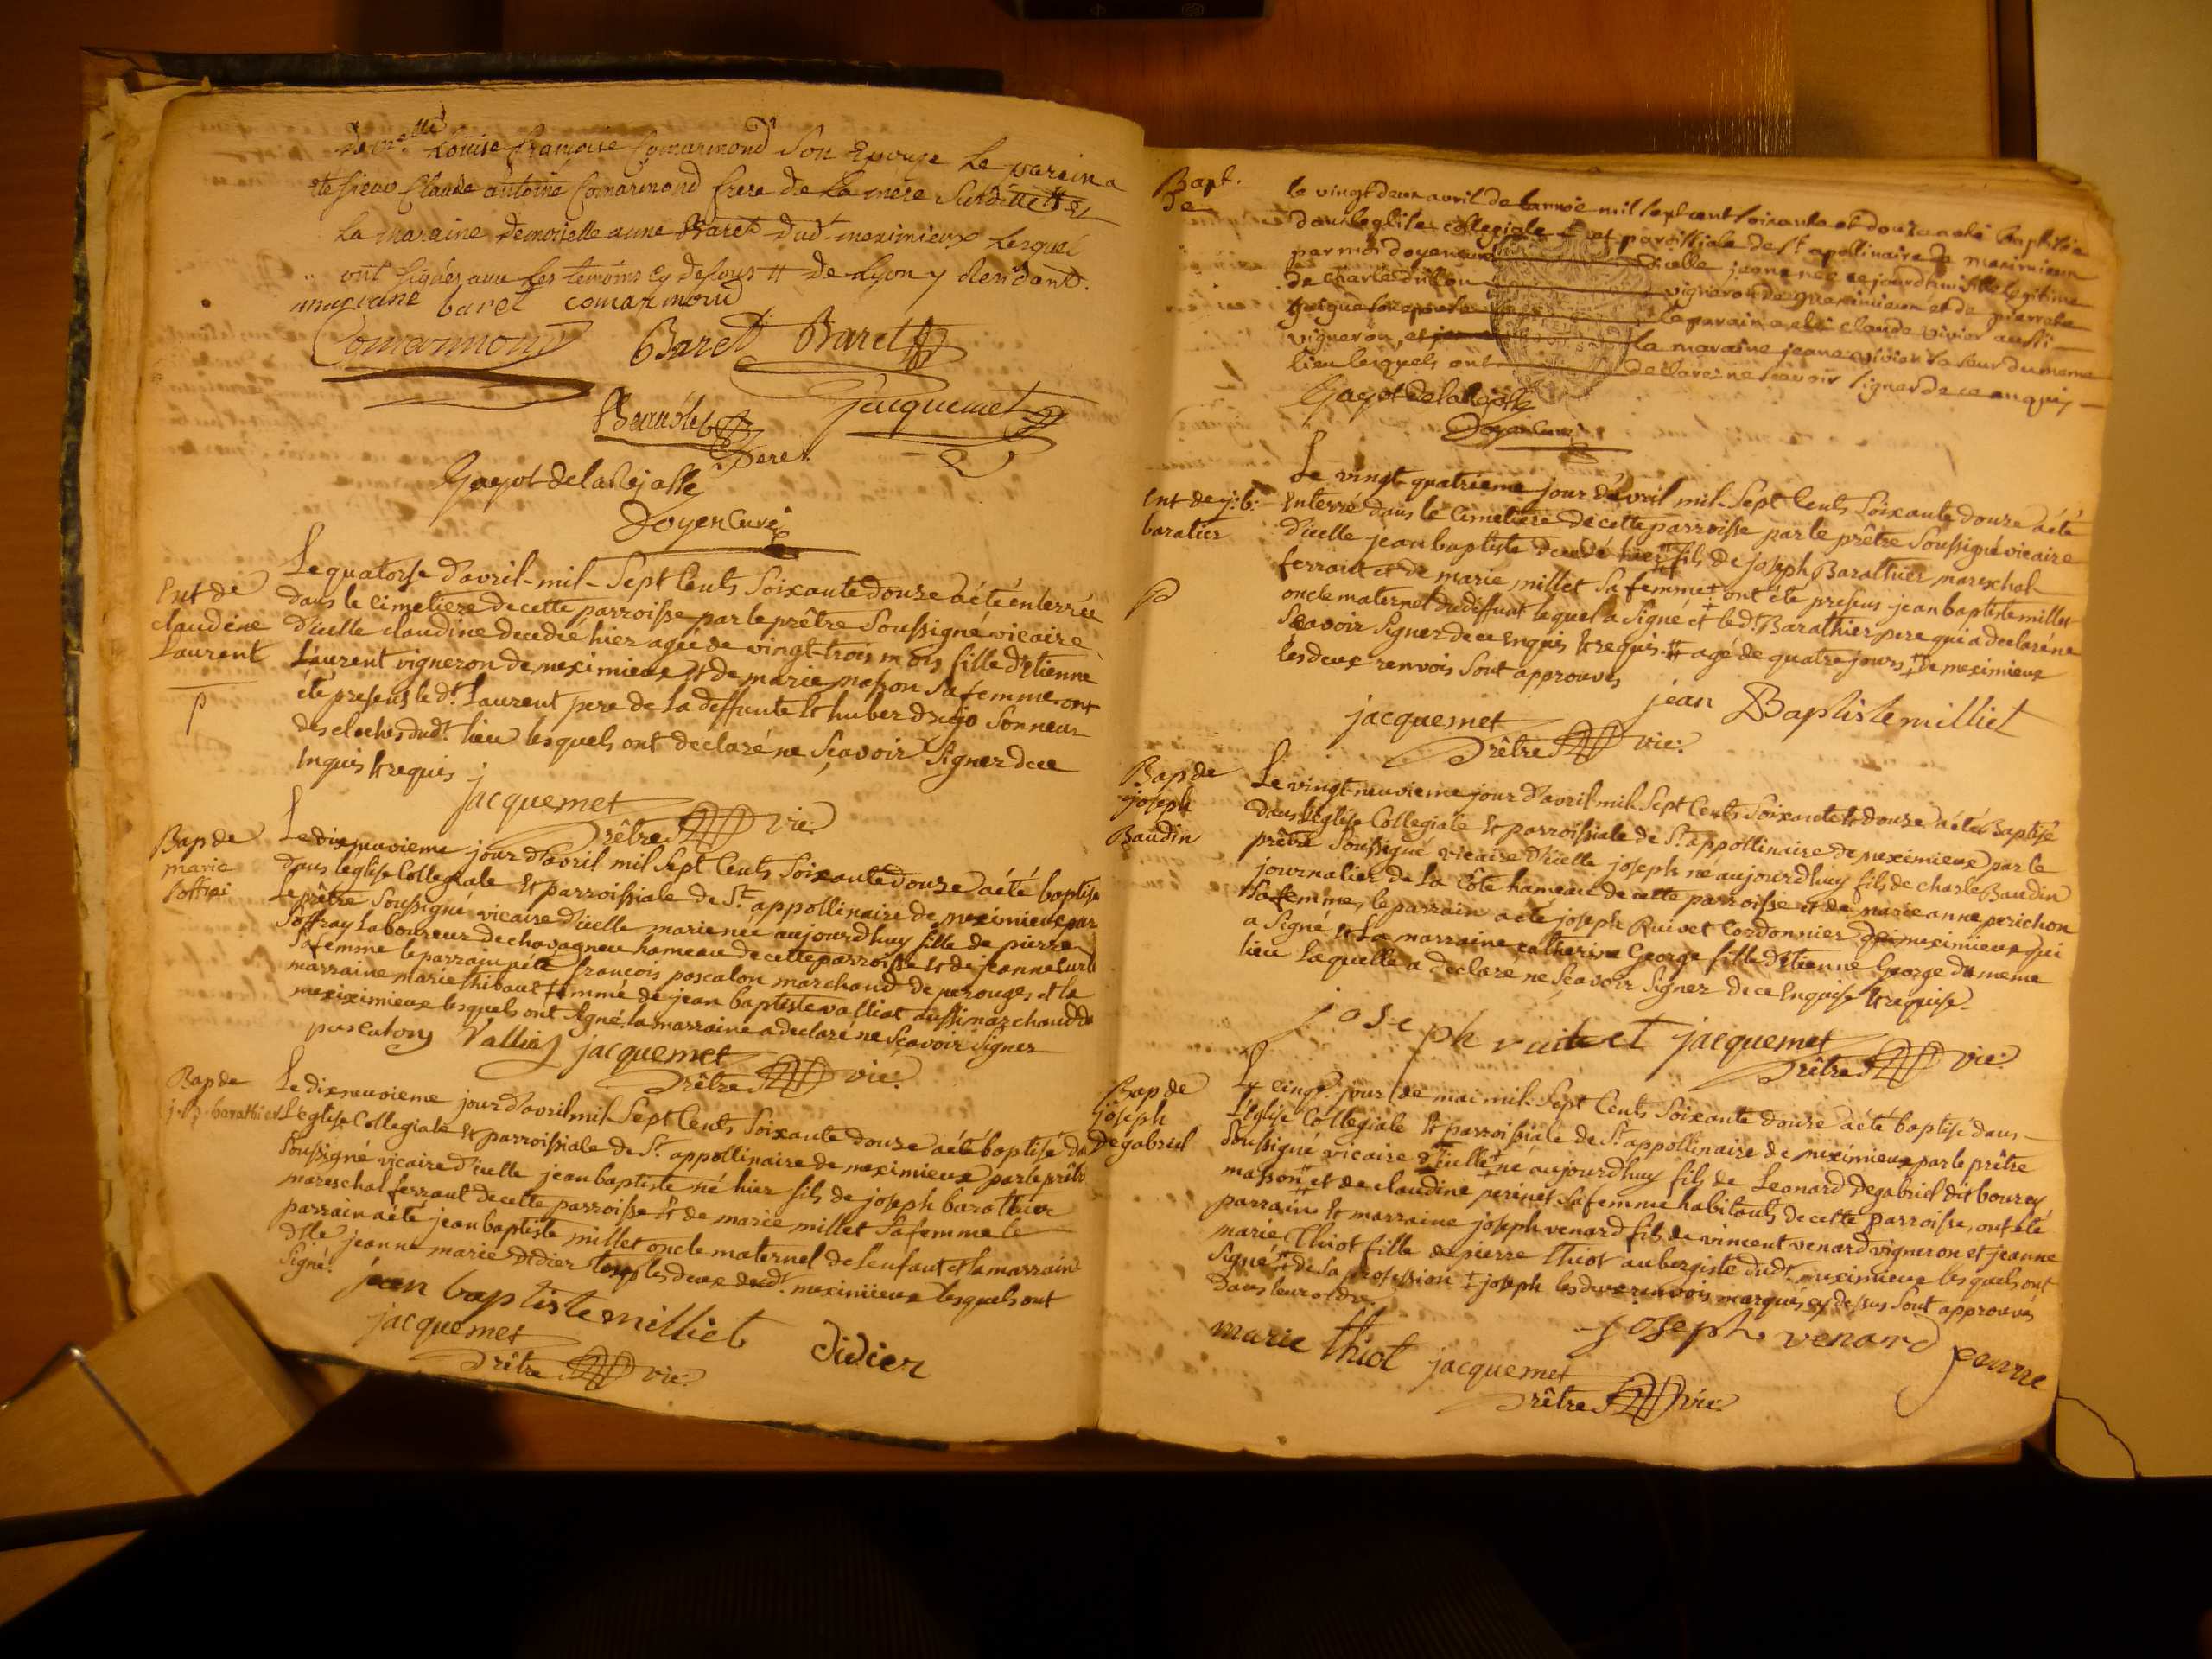 dem.elle Louise françoise Comarmond Son Epouse Le parein a
ete sieur Claude antoine Comarmond frere de La mere Susditte et
La maraine demoiselle anne Baret dud. meximieux Lesquels
ont signés avec Les temoins cy desous # de Lyon y Residant.
marianne baret comarmond
Comarmond Baret Baret
Jacquemet
Pere
Gayot de la Rejasse
Doyen Curé
Ent de
claudine
Laurent
P
Le quatorse d'avril mil Sept Cents Soixante douze a été enterrée
dans le Cimetiere de cette parroisse par le prêtre Soussigné vicaire
d'icelle claudine decedée hier agée de vingt-trois mois fille d'Etienne
Laurent vigneron de meximieux et de marie masson Sa femme ont
été presens le dt. Laurent pere de La deffunte et huber drojo Sonneur
des cloches dudt. lieu lesquels ont déclaré ne Sçavoir Signer de ce
Enquis et requis
jacquemet
Prêtre vic.
Bap de
marie
Soffrei
Le dix neuvieme jour d'avril mil Sept Cents Soixante douze a été baptisé
dans L'église Collegiale et parroissiale de St. appollinaire de meximieux par
Le prêtre Soussigné vicaire d'icelle marie née aujourdhuy fille de pierre
Soffray Laboureur de chavagneu hameau de cette parroisse et de jeanne Curt
Sa femme le parrain a été françois pascalon marchand de perouges et la
marraine marie thibaut femme de jean baptiste valliat aussi marchand de
meximieux lesquels ont signé, la marraine a declaré ne Sçavoir signer
pascalon Valliat jacquemet
Prêtre vic.
Bap de
j.b. barathier
Le dix neuvieme jour d'avril mil Sept Cents Soixante douze a été baptisé da
L'église Collegiale et parroissiale de St. appollinaire de meximieux par le prêt
Soussigné vicaire d'icelle jean baptiste né hier fils de joseph barathier
mareschal ferrant de cette parroisse et de marie millet Sa femme le
parrain a été jean baptiste millet oncle maternel de L'enfant et la marraine
dlle jeanne marie didier les deux dudt. meximieux lesquels ont
Signé.
jean baptiste milliet
didier
jacquemet
Prêtre vic.
Bapt.
De
le vingt deux avril de lannée mil sept cent soixante et douze a été baptisée
dans leglise collegiale et paroissiale de st apollinaire de meximieux
par moi doyen curé dicelle jeanne née ce jourdhui fille legitime
de Charle drillon vigneron de meximieux et de pierrette
son epouse le parain a été claude vivier aussi
vigneron, et la maraine jeanne vivier sa seur du meme
lieu lesquels ont declaré ne savoir signer de ce enquis
Gayot de la Rejasse
Doyen Curé
Ent de j. b.
baratier
P
Le vingt-quatrieme jour d'avril mil Sept Cents Soixante douze a été
Enterré dans le Cimetiere de cette parroisse par le prêtre Soussigné vicaire
d'icelle jean baptiste decedé hier # fils de joseph Barathier mareschal
ferrant et de marie millet Sa femme ‡ ont été presens jean baptiste millet
oncle maternel du deffunt lequel a Signé et le dt. Barathier pere qui a declaré ne
Sçavoir Signer de ce Enquis et requis. # agé de quatre jours, ‡ de meximieux
les deux renvois Sont approuvés
jacquemet jean Baptiste milliet
Prêtre vic.
Bap de
joseph
Baudin
Le vingt-neuvieme jour d'avril mil Sept Cents Soixante et douze a été Baptisé
dans L'église Collegiale et parroissiale de St. appollinaire de meximieux par le
prêtre Soussigné vicaire d'icelle joseph né aujourdhuy fils de charle Baudin
journalier de La Côte hameau de cette parroisse et de marie anne perichon
Sa femme, le parrain a été joseph Ruivet Cordonnier de meximieux qui
a Signé et La marraine catherine George fille d'Etienne George du meme
lieu Laquelle a declaré ne Sçavoir Signer de ce Enquise et requise
joseph ruivet jacquemet
Prêtre vic.
Bap de
joseph
Degabriel
Le cinqe. jour de mai mil Sept Cents Soixante douze a été baptisé dans
L'église Collegiale et parroissiale de St. appollinaire de meximieux par le prêtre
Soussigné vicaire d'icelle ‡ né aujourdhuy fils de Leonard Degabriel dit bourey
masson # et de claudine perinet Sa femme habitants de cette parroisse, ont été
parrain et marraine joseph venard fils de vincent venard vigneron et jeanne
marie Thiot fille de pierre Thiot aubergiste dudt. meximieux lesquels ont
Signé # de sa profession ‡ joseph les deux renvois marqués cy dessus Sont approuvés
dans leur ordre.
joseph venard jeanne
marie thiot jacquemet
Prêtre vic.